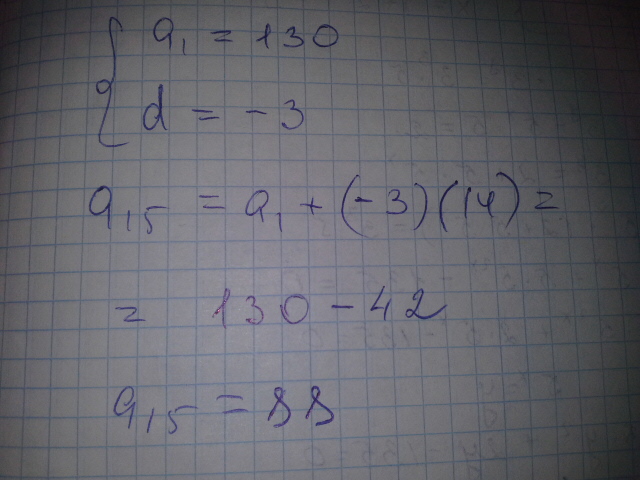 a₁ = 130
d = -3
a₁₅ = a₁ + (-3)(14) =
= 130 - 42
a₁₅ = 88